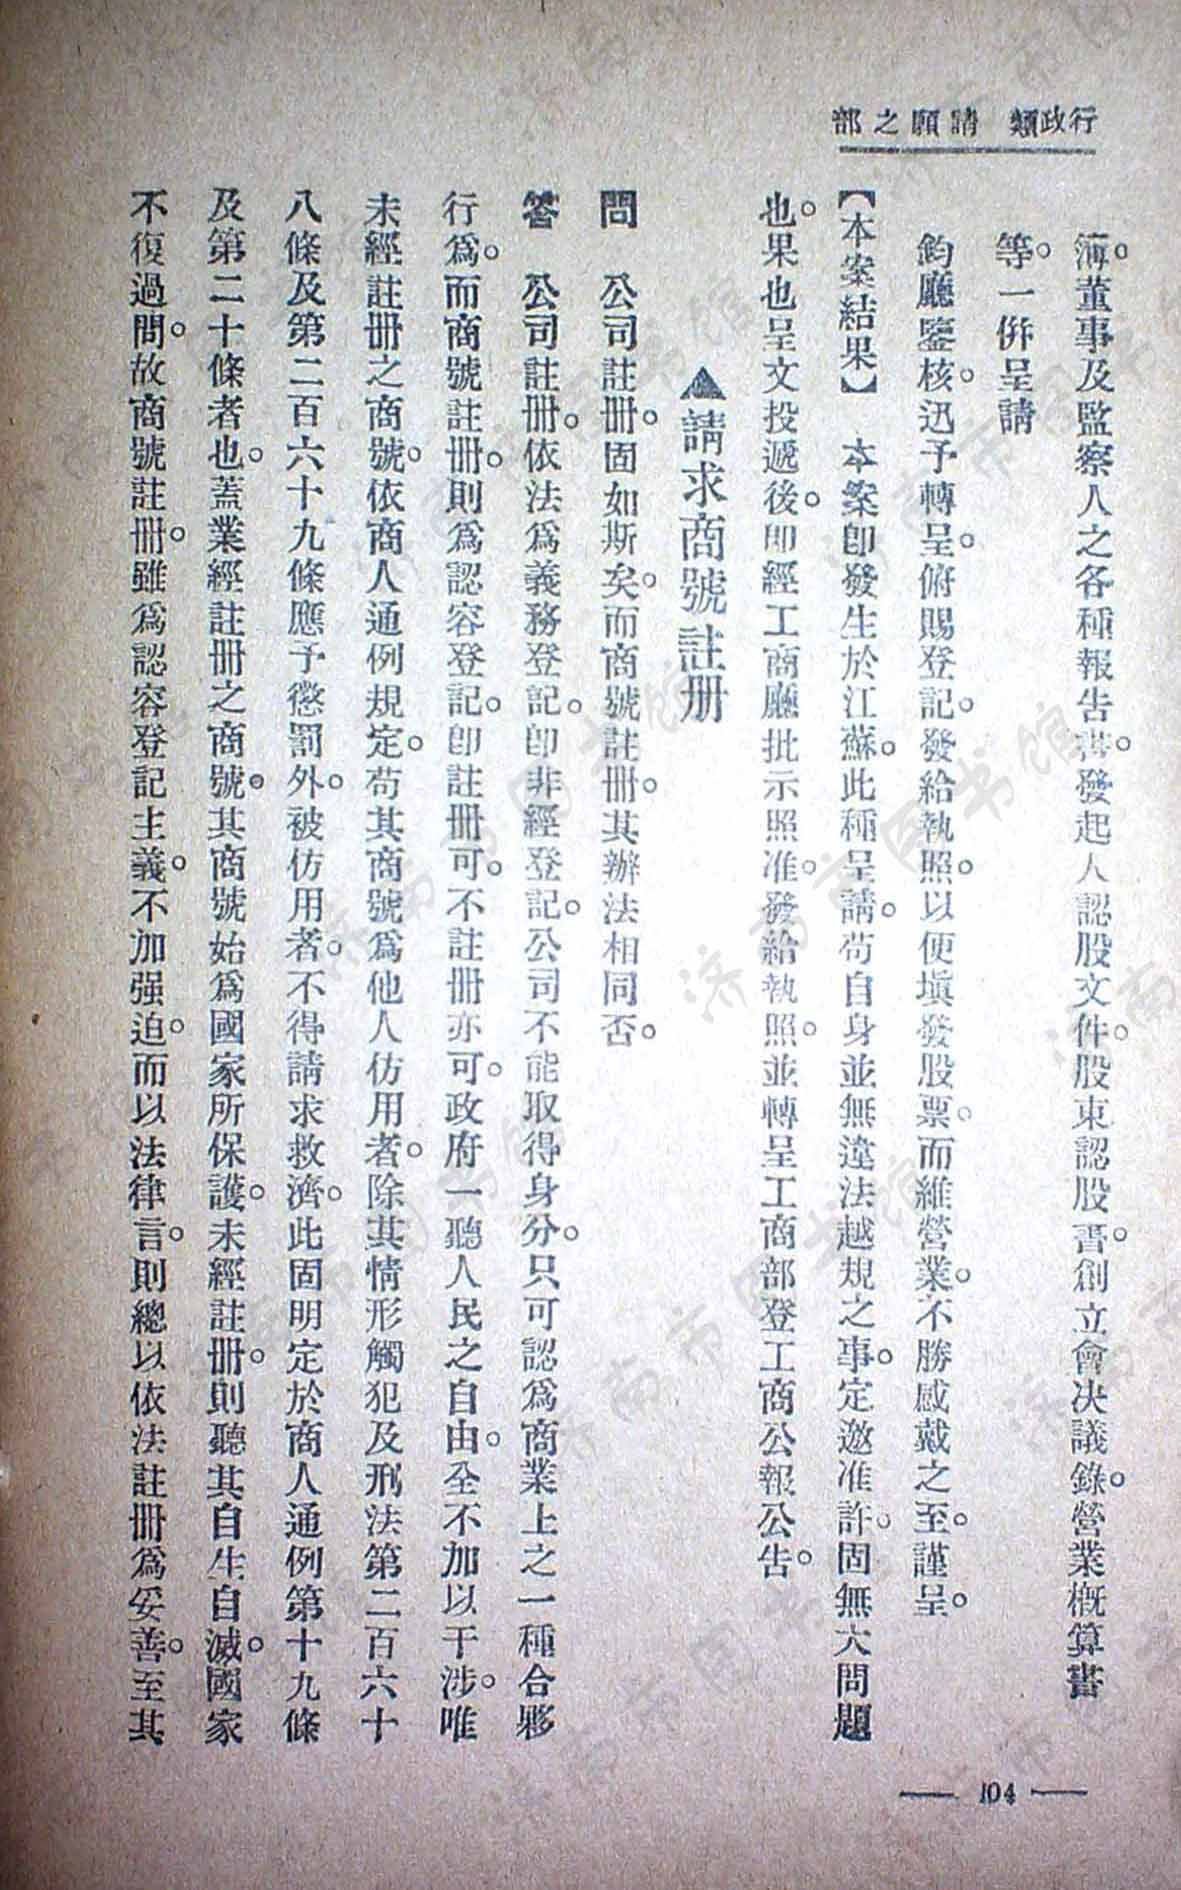 行政類　請願之部
簿。董事及監察人之各種報告書。發起人認股文件。股東認股書。創立會決議錄。營業概算書
等。一併呈請
鈞廳鑒核。迅予轉呈。俯賜登記。發給執照。以便塡發股票。而維營業。不勝感戴之至。謹呈。
【本案結果】　本案卽發生於江蘇。此種呈請。苟自身並無違法越規之事。定邀准許。固無大問題
也。果也呈文投遞後。卽經工商廳批示照准。發給執照。並轉呈工商部登工商公報公告。
▲請求商號註册
問　公司註册。固如斯矣。而商號註册。其辦法相同否。
答　公司註册。依法爲義務登記。卽非經登記。公司不能取得身分。只可認爲商業上之一種合夥
行爲。而商號註册。則爲認容登記。卽註册可。不註册亦可。政府一聽人民之自由。全不加以干涉。唯
未經註册之商號。依商人通例規定。苟其商號爲他人仿用者。除其情形觸犯及刑法第二百六十
八條及第二百六十九條應予懲罰外。被仿用者。不得請求救濟。此固明定於商人通例第十九條
及第二十條者也。蓋業經註册之商號。其商號始爲國家所保護。未經註册。則聽其自生自滅。國家
不復過問。故商號註册。雖爲認容登記主義。不加强迫。而以法律言。則總以依法註册爲妥善。至其
— 104 —
济南市图书馆